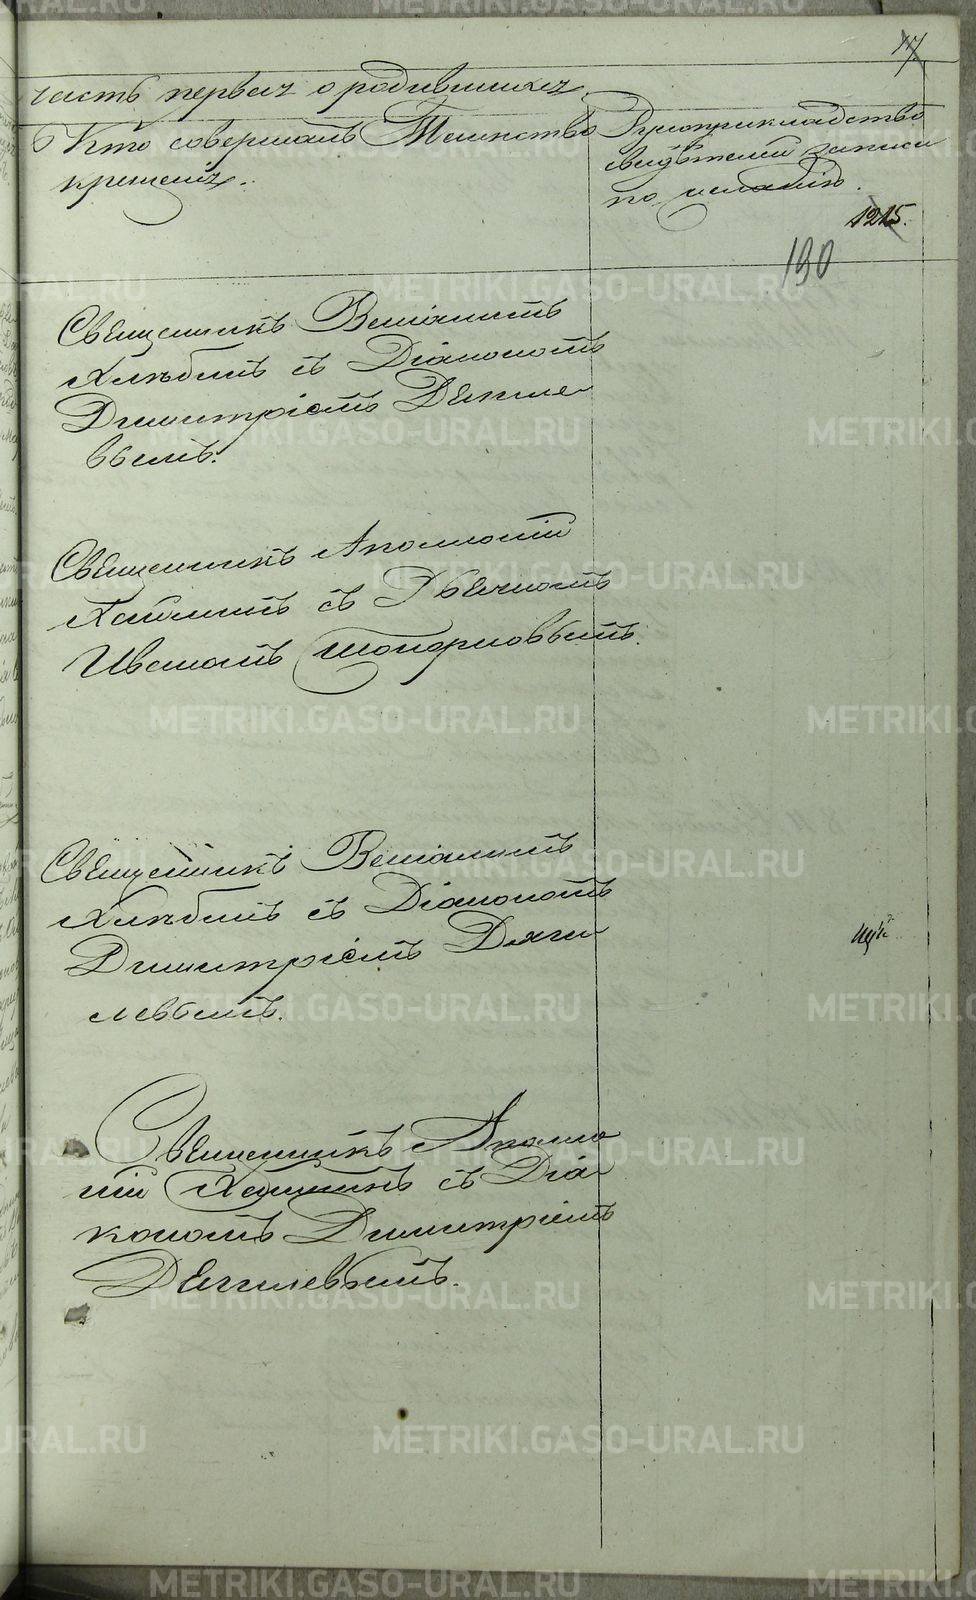 17
часть первая о родившихся.
Кто совершалъ Таинство
крещенія.
Рукоприкладство
свидѣтелей записи
по желанію.
1215.
190
Священникъ Веніаминъ
Хлѣбинъ съ Діакономъ
Димитріемъ Дягиле
вымъ.
Священникъ Аполлоній
съ Дьячкомъ
Иваномъ Топорковымъ.
Священникъ Веніаминъ
Хлѣбинъ съ Діакономъ
Димитріемъ Дяги
левымъ.
Священникъ Аполло
ній съ Діа
кономъ Димитріемъ
Дягилевымъ.
METRIKI.GASO-URAL.RU